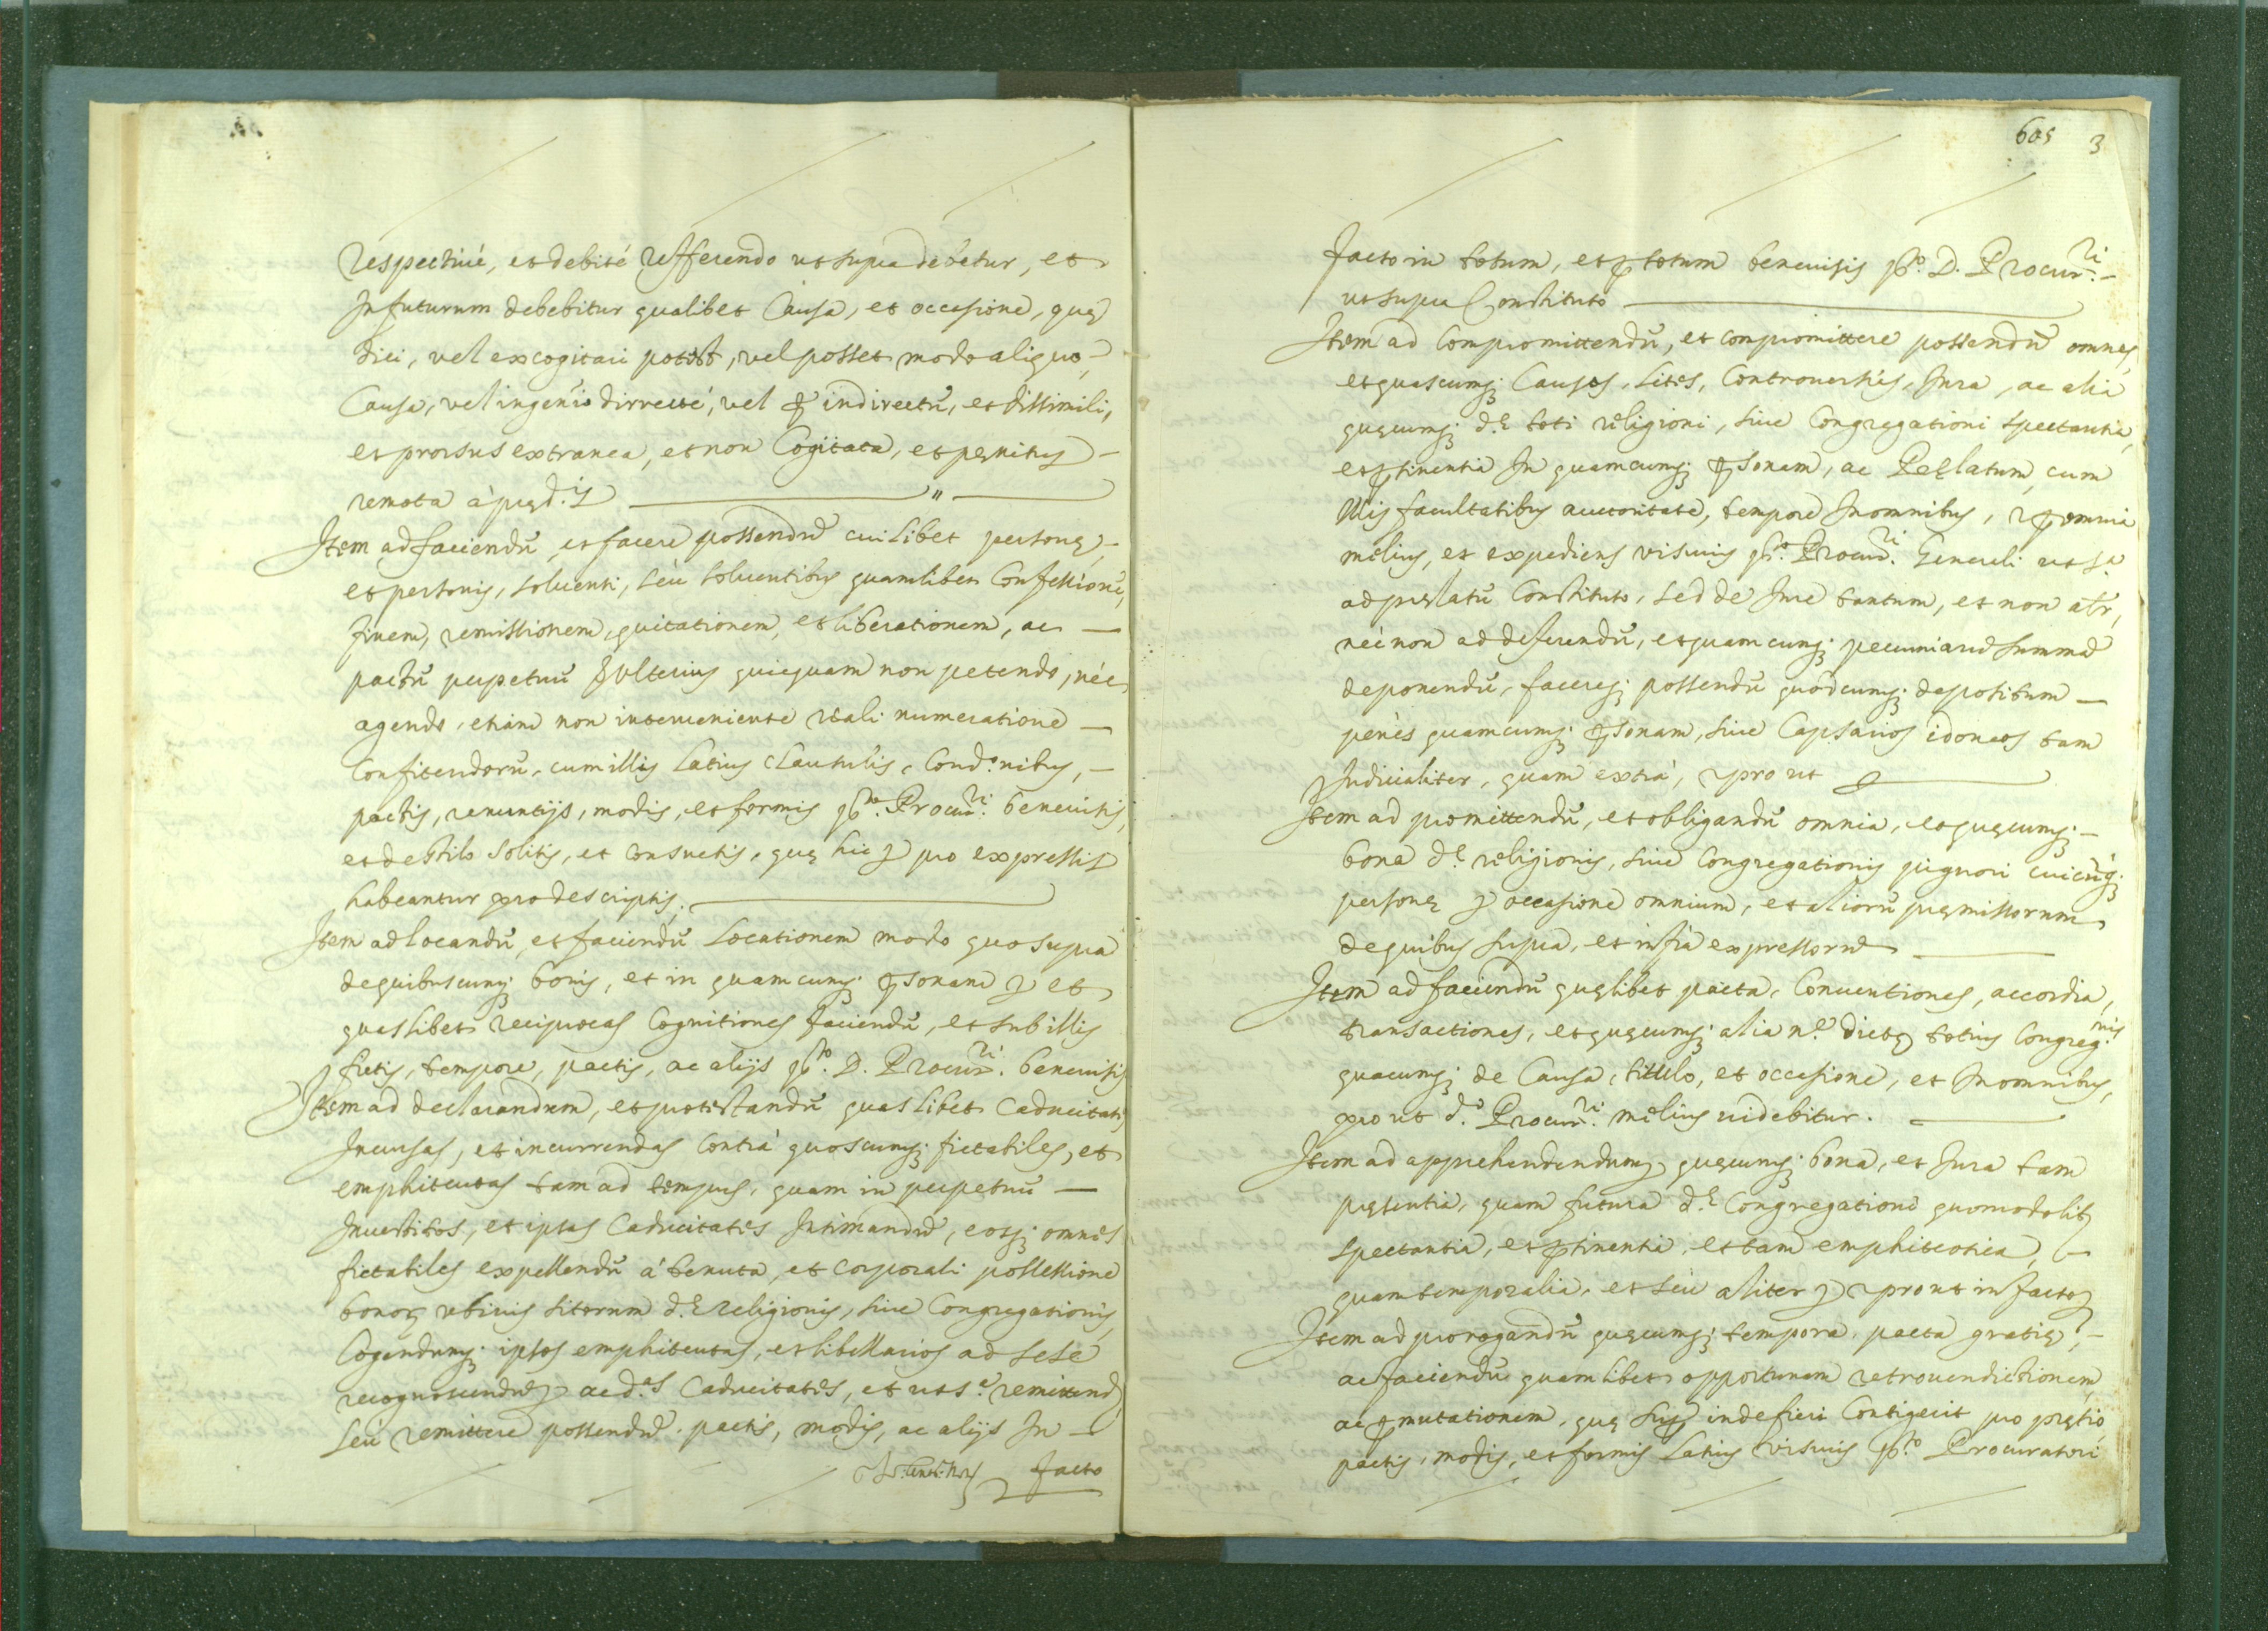 respectiuè, et debitè refferendo ut supra debetur, et
In futurum debebitur qualibet Causa, et occasione, quę
dici, vel excogitari potest, vel posset modo aliquo,
Causa, vel ingenio dirrectè, vel ꝑ indirectũ, et dissimili,
et prorsus extranea, et non Cogitata, et pęnitus
remota à pręd.is
Item ad faciendũ, et facere possendũ cuilibet personę,
et personis, soluenti, seù soluentibus quamlibet Confessionẽ,
finem, remissionem, quitationem, et liberationem, ac
pactũ perpetuũ de ulterius quicquam non petendo, nèc
agendo, etiam non interueniente reali numeratione
Confitendorũ, cum illis Latius Clausulis, Cond.onibus,
pactis, renuntijs, modis, et formis Procur.ri beneuisis,
et de stilo solitis, et consuetis, quę hic pro expressis
habeantur pro descriptis.
Item ad locandũ, et faciendũ Locationem modo quo supra
de quibuscunq; bonis, et in quamcunq; ꝑsonam et
quaslibet reciprocas Cognitiones faciendũ, et sub illis
fictis, tempore, pactis, ac alijs D. Procur.ri beneuisis
Item ad declarandum, et protestandũ quaslibet Caducitates
Incursas, et incurrendas Contrà quoscunq; fictabiles, et
emphiteutas tam ad tempus, quam in perpetuũ
Inuestitos, et ipsas Caducitates Intimandũ, eosq; omnes
fictabiles expellendũ à tenuta, et corporali possessione
bonorum ubiuis sitorum d.ę religionis, siue Congregationis,
Cogendumq; ipsos emphiteutas, et libellarios ad sese
recognoscendũ ac d.as Caducitates, et ut s.a remittend
Seù remittere possendũ pactis, modis, ac alijs In
facto
605 3
facto in totum, et ꝑ totum beneuisis D. Procur.ri
ut supra Constituto
Item ad Compromittendũ, et compromittere possendũ omnes,
et quascumq; Causas, Lites, Controuersias, Iura, ac alia
quęcumq; d.ę toti religioni, siue Congregationi spectantia,
et ꝑtinentia In quamcumq; ꝑsonam, ac Pręlatum, cum
Illis facultatibus auctoritate, tempore In omnibus, et ꝑ omnia
melius, et expediens visuris Procur.ri Generali ut s.a
ad pręlatũ Constituto, sed de Iure tantum, et non alr,
nèc non ad deferendũ, et quamcumq; pecuniarũ summã
deponendũ, facereq; possendũ quodcumq; depositum
penès quamcumq; ꝑsonam, siue Capsarios idoneos tam
Iudicialiter, quam extrà, et pro ut
Item ad promittendũ, et obligandũ omnia, et quęcumq;
bona d.ę religionis, siue Congregationis pignori cuicũq;
personę occasione omnium, et aliorũ pręmissorum
de quibus supra, et infra expressorũ
Item ad faciendũ quęlibet pacta, Conuentiones, accordia,
transactiones, et quęcumq; alia n.e dictę totius Congreg.nis
quacumq; de Causa, tittulo, et occasione, et In omnibus,
pro ut d.o Procur.ri melius uidebitur.
Item ad apprehendendum quęcumq; bona, et Iura tam
pręsentia, quam futura d.ę Congregationi quomodolibet
spectantia, et ꝑtinentia, et tam emphiteotica,
quam temporalia, et seù aliter et prout in facto
Item ad prorogandũ quęcumq; tempora, pacta gratię,
ac faciendũ quamlibet opportunam retrouenditionem,
ac ꝑmutationem, quę inde fieri Contigerit pro prętio,
pactis, modis, et formis Latius visuris Procuratori